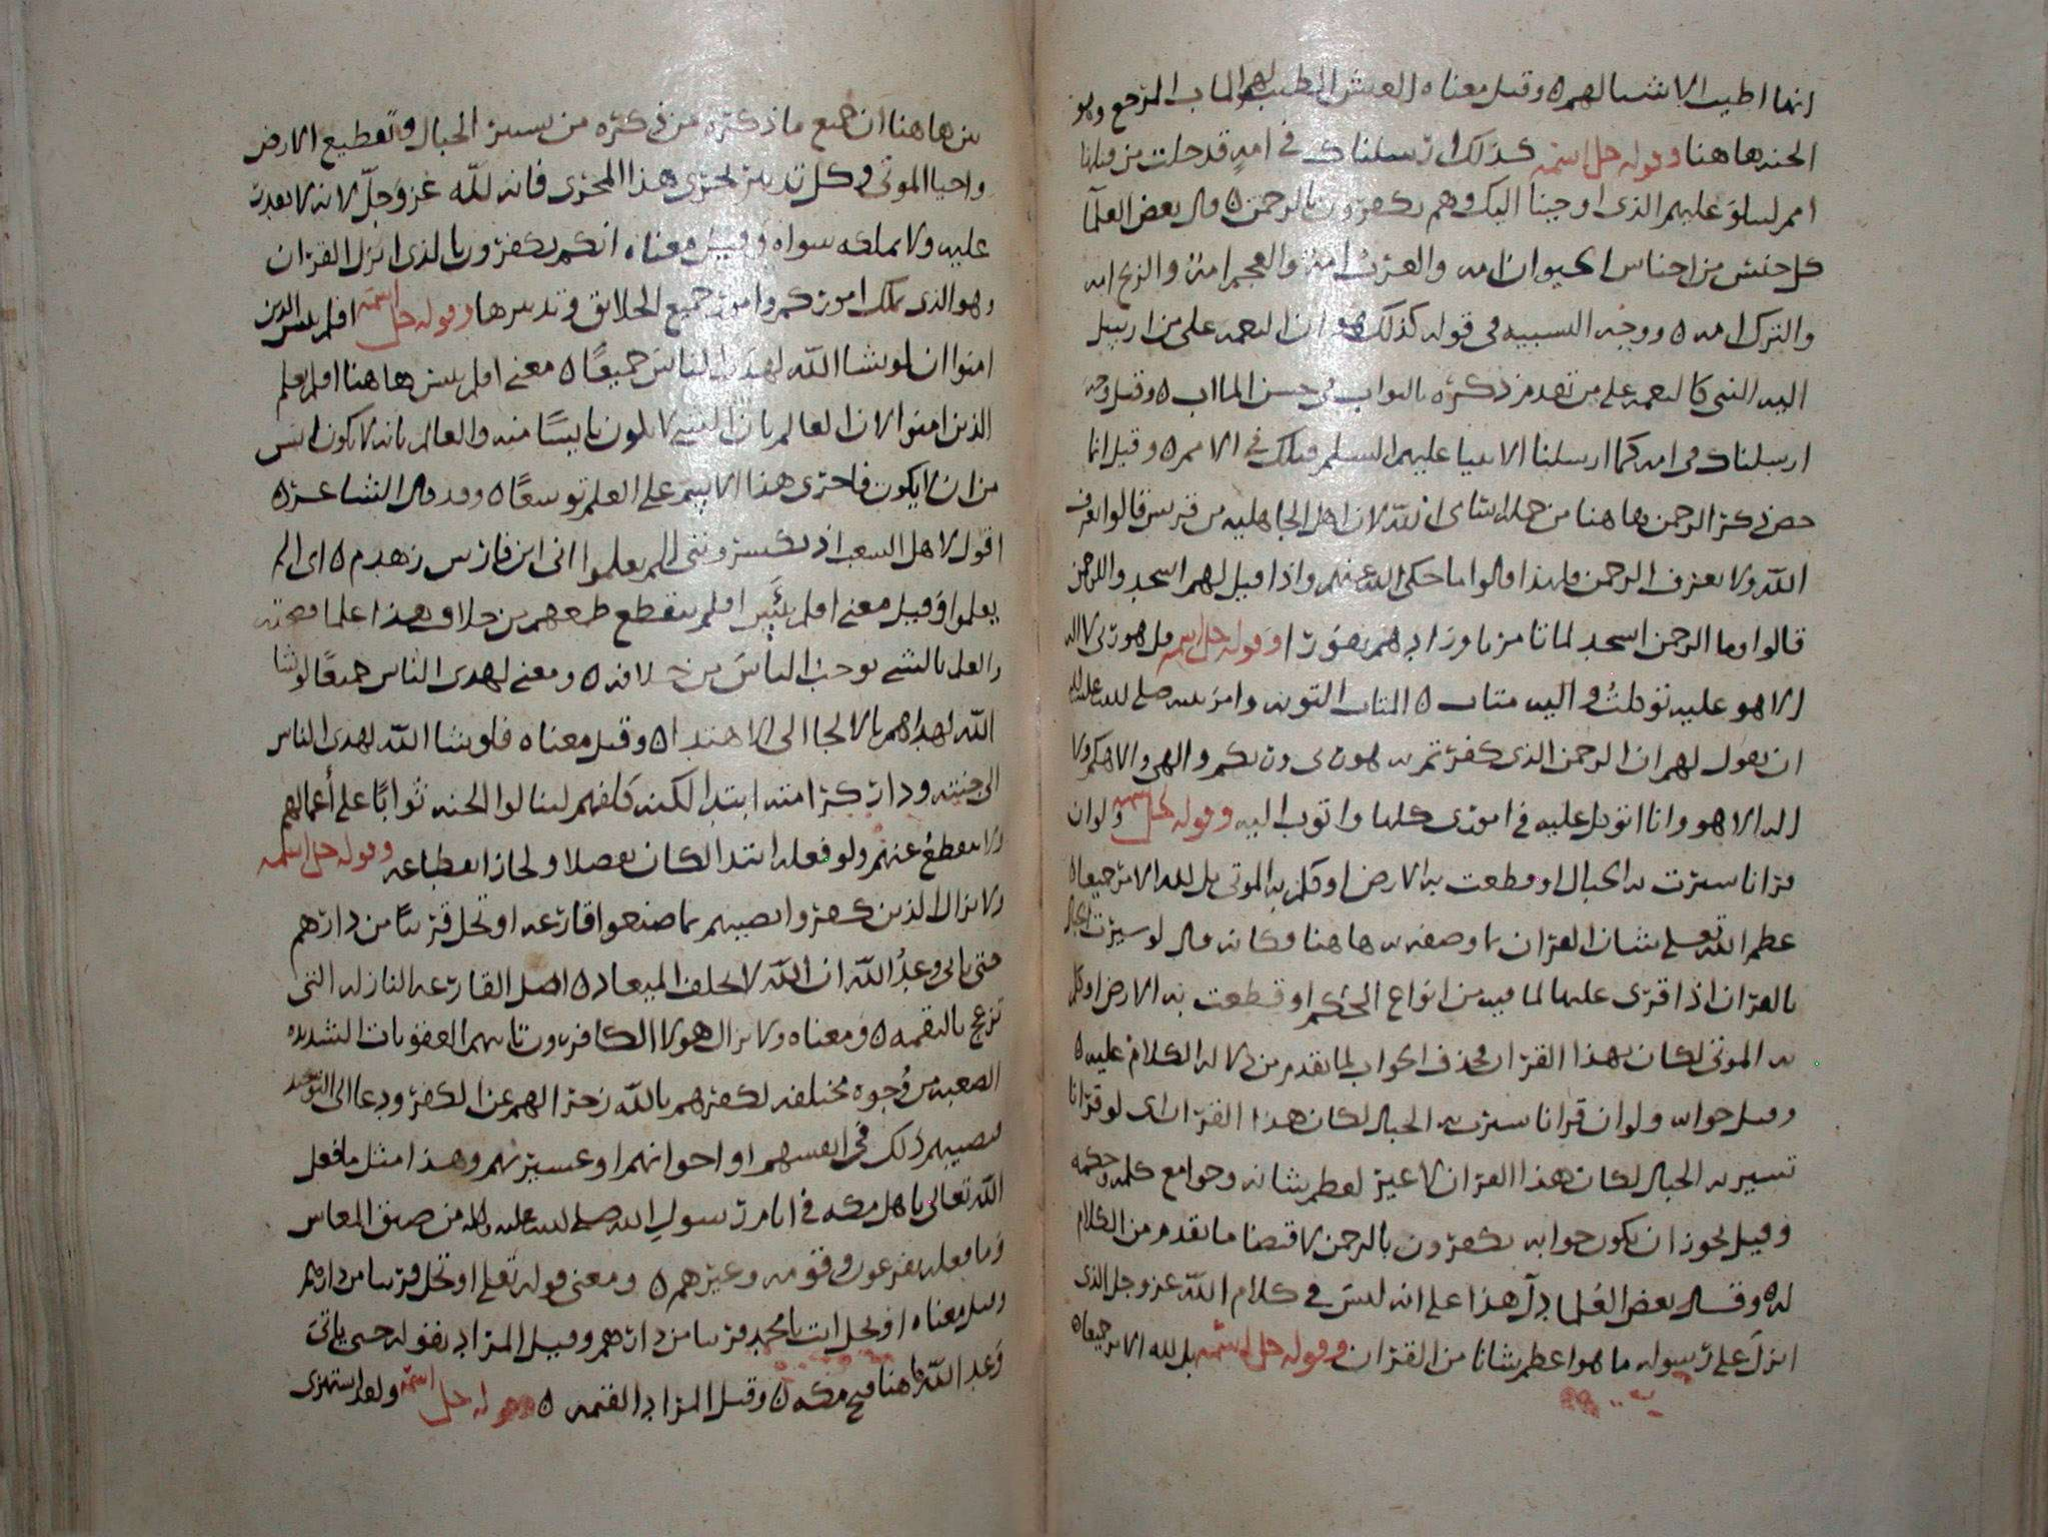 انها اطيب الاشيا لهم ٥ وقيل معناه العيش الطيب لهم والماب المرجع وهو
الجنه هاهنا وقوله جل اسمه كذلك ارسلناك في امةٍ قد خلت من قبلها
امم لتتلوَ عليهم الذى اوحينا اليك وهم يكفرون بالرحمن ٥ قال بعض العلمآ
كل جنس من اجناس الحيوان امه والعرب امة والعجم امة والزنج امه
والترك امه ٥ ووجه التشبيه في قوله كذلك هو ان النعمه على من ارسل
اليه النبي كالنعمه على من تقدم ذكره بالثواب في حسن الماب ٥ وقيل وجه
ارسلناك في امه كما ارسلنا الانبيا عليهم السلم قبلك في الامم ٥ وقيل انما
خص ذكر الرحمن هاهنا من جملة اسماى الله لان اهل الجاهليه من قريش قالوا نعرف
الله ولا نعرف الرحمن ولهذا قالوا ما حكى الله عنهم واذا قيل لهم اسجدوا للرحمن
قالوا وما الرحمن انسجد لما تامرنا وزادهم نفورًا وقوله جل اسمه قل هو ربى لا اله
الا هو عليه توكلتُ واليه متاب ٥ المتاب التوبه وامر نبيه صلى الله عليه
ان يقول لهم ان الرحمن الذى كفرتم به هو ربى وربكم والهى والاهكم ولا
اله الا هو وانا اتوكل عليه في امورى كلها واتوب اليه وقوله جل اسمه ولو ان
قرانا سيرت به الجبال او قطعت به الارض او كلم به الموتى بل لله الامر جميعا ٥
عظم الله تعلى شان القران بما وصفه به هاهنا وكانه قال لو سيرت الجبال
بالقران اذا قرى عليها لما فيه من انواع الحكم او قطعت به الارض او كلم
به الموتى لكان بهذا القران فحذف الجواب لما تقدم من دلالة الكلام عليه ٥
وقيل جوابه ولو ان قرانا سيرت به الجبال لكان هذا القران اى لو قرانا
تسير به الجبال لكان هذا القران لا غير لعظم شانه وجوامع كلمه وحكمه
وقيل يجوز ان يكون جوابه يكفرون بالرحمن لاقتضا ما تقدم من الكلام
له ٥ وقال بعض العُلما دلّ هذا على انه ليسَ في كلام الله عز وجل الذى
انزلَ على رسوله ما هو اعظم شانا من القران وقوله جل اسمه بل لله الامر جميعا ٥
من هاهنا ان جميع ما ذكره من ذكره من سيرة الجبال وتقطيع الارض
واحيا الموتى وكل تدبير يجرى هذا المجرى فانه لله عز وجلّ لانه لا يقدر
عليه ولا يملكه سواه وقيل معناه انكم تكفرون بالذى انزل القران
وهو الذى يملك اموركم وامور جميع الخلايق وتدبيرها وقوله جل اسمه افلم يايس الذين
امنوا ان لو يشا الله لهدى الناسَ جميعًا ٥ معنى افلم ييس هاهنا افلم يعلم
الذين امنوا لان العالم بان الشى لا يكون يايسًا منه والعالم بانه لا يكون ايس
من ان لا يكون فاجرى هذا الاسم على العلم توسعًا ٥ وقد قال الشاعر ٥
اقول لاهل الشعب اذ يَيْسرونني الم يعلموا انى ابن فارس زهدم ٥ اى الم
يعلموا وقيل معنى افلم يَيْئَس افلم ينقطع طمعهم من خلاف هذا علما بصحته
والعلم بالشى يوجب الياسَ من خلافه ٥ ومعنى لهدى الناس جميعًا لو يشا
الله لهداهم بالالجا الى الاهتدا ٥ وقيل معناه فلو يشا الله لهدى الناس
الى جنته ودار كرامته ابتدا لكنه كلفهم لينالوا الجنه ثوابًا على أعمالهم
ولا ينقطعُ عنهم ولو فعله ابتدا لكان تفضلا ولجاز انقطاعه وقوله جل اسمه
ولا يزال الذين كفروا تصيبهم بما صنعوا قارعه او تحل قريبًا من دارهم
حتى ياتى وعدُ الله ان الله لا يخلف الميعاد ٥ اصل القارعه النازله التى
تزعج بالنقمه ٥ ومعناه ولا يزال هولا الكافرون تاتيهم العقوبات الشديده
الصعبه من وُجوه مختلفه لكفرهم بالله زجرا لهم عن الكفر ودعا الى التوحيد
تصيبهم ذلك في انفسهم او اخوانهم او عشيرتهم وهذا مثل ما فعل
الله تعالى باهل مكه في ايام رسولِ الله صلى الله عليه واله من ضيق المعاش
وما فعله بفرعون وقومه وغيرهم ٥ ومعنى قوله تعلى او تحل قريبا من دارهم
وقيل معناه او تحل انت يا محمد قريبا من دارهم وقيل المراد بقوله حتى ياتى
وَعد الله هاهنا فتح مكه ٥ وقيل المراد القيمه ٥ وقوله جل اسمه ولقد استهزى